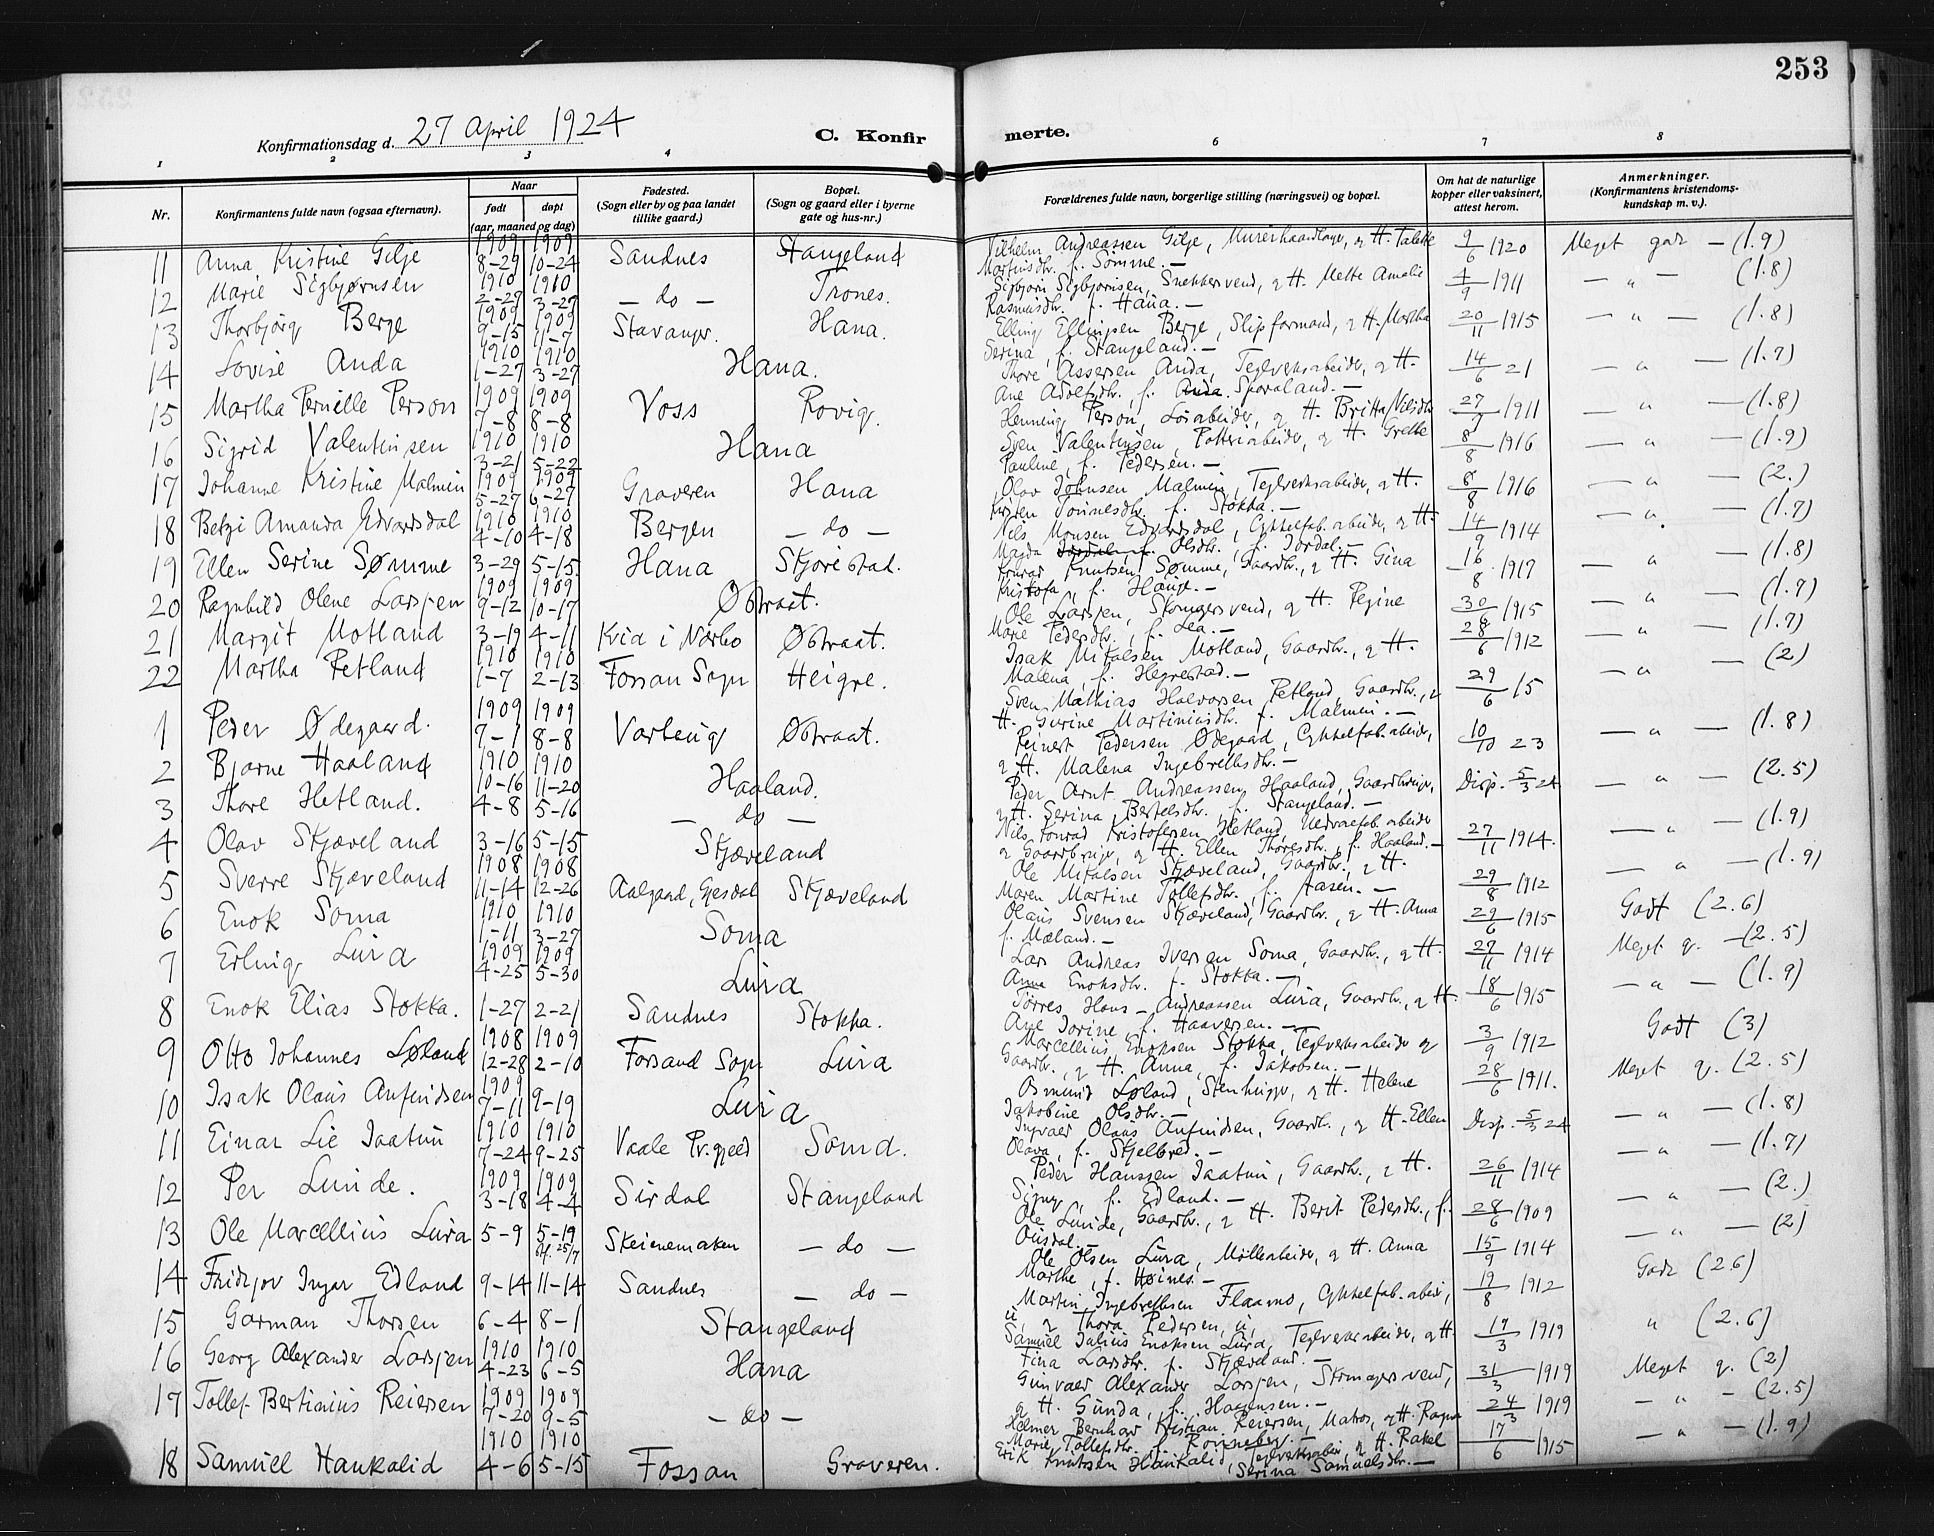 253
Konfirmationsdag d. 27 April 1924
C. Konfirmerte.
1 2 3 4 5 6 7 8
Nr.
Konfirmantens fulde navn (ogsaa efternavn).
Naar
født
døpt
(aar, maaned og dag)
Fødested.
(Sogn eller by og paa landet
tillike gaard.)
Bopæl.
(Sogn og gaard eller i byerne
gate og hus-nr.)
Forældrenes fulde navn, borgerlige stilling (næringsvei) og bopæl.
Om hat de naturlige
kopper eller vaksinert,
attest herom.
Anmerkninger.
(Konfirmantens kristendoms-
kundskap m. v.).
11 Anna Kristine Gilje 1909 8-29 1909 10-24 Sandnes Stangeland Vilhelm Andreassen Gilje, Murerhaandlanger, og H. Talette 9/6 1920 Meget godt — (1.9)
Martinsdtr. f. Sømme. —
12 Marie Sigbjørnsen 1910 2-27 1910 3-27 — do — Trones. Sigbjørn Sigbjørnsen, Snekkersvend, og H. Mette Amalie 4/9 1911 — " — (1.8)
Rasmusdtr. f. Hana. —
13 Thorbjørg Berge 1909 9-15 1909 11-7 Stavanger. Hana. Elling Ellingsen Berge, Slipformand, og H. Martha 20/11 1915 — " — (1.8)
Serina, f. Stangeland. —
14 Lovise Anda 1910 1-27 1910 3-27 Hana. Thore Assersen Anda, Teglverksarbeider, og H. 14/6 21 — " — (1.7)
Ane Adolfsdtr., f. Sporaland. —
15 Martha Pernille Person 1909 7-8 1909 8-8 Voss Rovig. Henning Person, Løsarbeider, og H. Britta Nilsdtr 27/7 1911 — " — (1.8)
16 Sigrid Valentinsen 1910 3-21 1910 5-22 Hana Sven Valentinsen, Potteriarbeider, og H. Grethe 8/8 1916 — " — (1.9)
Pauline, f. Pedersen. —
17 Johanne Kristine Malmin 1909 5-27 1909 6-27 Graveren Hana Olav Johnsen Malmin, Teglverksarbeider, og H. 6/8 1916 — " — (2.)
Kirsten Tonnesdtr. f. Stokka. —
18 Betzi Amanda Edvardsdal 1910 4-10 1910 4-18 Bergen — do — Nils Monsen Edvardsdal, Cykkelfab.arbeider, og H. 14/9 1914 — " — (1.7)
Magda Olsdtr., f. Jordal. —
19 Ellen Serine Sømme 3-29 5-15 Hana Skjørestad. Konrad Knutsen Sømme, Gaardbr., og H. Gina 16/8 1917 — " — (1.8)
Kristofa, f. Hauge. —
20 Ragnhild Olene Larsjen 1909 9-12 1909 10-17 Østraat. Ole Larsjen, Skomagersvend, og H. Regine 30/6 1915 — " — (1.7)
Marie Pedersdtr., f. Lea. —
21 Margit Motland 3-19 4-11 Kvia i Nærbo Østraat. Isak Mikalsen Motland, Gaardbr., og H. 28/6 1912 — " — (1.7)
Malena f. Hegrestad. —
22 Martha Retland 1910 1-7 1910 2-13 Fossan Sogn Heigre. Sven Mathias Halvorsen Retland, Gaardbr., og 29/6 15 — " — (2)
H. Gurine Martiniusdtr. f. Malmin. —
1 Peder Ødegaard. 1909 7-1 1909 8-8 Varteug Østraat. Reinert Pedersen Ødegaard, Cykkelfab.arbeider, 10/10 23 — " — (1.8)
og H. Malena Ingebretsdtr. —
2 Bjarne Haaland 1910 10-16 1910 11-20 Haaland. Peder Arnt Andreassen Haaland, Gaardbruger, Disp. 5/3 24 — " — (2.5)
og H. Serina Bertelsdtr. f. Stangeland. —
3 Thore Hetland. 4-8 5-16 — do — Nils Konrad Kristofersen Hetland, Uldvarefab.arbeider 27/11 1914. — " — (1.9)
og Gaardbruger, og H. Ellen Thoresdtr., f. Haaland. —
4 Olav Skjæveland 3-16 5-15 Skjæveland Ole Mikalsen Skjæveland, Gaardbr., og H. 29/8 1912 — " — (1.9)
Maren Martine Tollefsdtr., f. Aasen. —
5 Sverre Skjæveland 1908 11-14 1908 12-26 Aalgaard, Gjesdal Skjæveland Olaus Svensen Skjæveland, Gaardbr., og H. Anna 29/6 1915 Godt (2.6)
f. Mæland. —
6 Enok Soma 1910 1-11 1910 3-27 Soma Lars Andreas Iversen Soma, Gaardbr., og H. 27/11 1914 Meget g. — (2.5)
Anna Enoksdtr. f. Stokka. —
7 Erling Lura 1909 4-25 1909 5-30 Lura Tørres Hans-Andreassen Lura, Gaardbr., og H. 18/6 1915 — " — (1.9)
Ane Jorine, f. Haaversen. —
8 Enok Elias Stokka. 1-27 2-21 Sandnes Stokka. Marcellius Enoksen Stokka, Teglverksarbeider og 3/9 1912 Godt (3)
Gaardbr., og H. Anna, f. Jakobsen. —
9 Otto Johannes Løland 1908 12-28 1909 2-10 Forsand Sogn Lura Osmund Løland, Stenhugger, og H. Helene 28/6 1911. Meget g. (2.5)
Jakobine Olsdtr. —
10 Isak Olaus Anfindsen 1909 7-11 9-19 Lura Ingvald Olaus Anfindsen, Gaardbr., og H. Ellen Disp. 5/3 24 — " — (1.8)
Olava, f. Skjelbred. —
11 Einar Lie Jaatun 1910 7-24 1910 9-25 Vaale Pr.gjeld Soma. Peder Hanssen Jaatun, Gaardbr., og H. 26/11 1914 — " — (1.7)
Signy, f. Edland. —
12 Per Lunde. 1909 3-18 1909 4-4 Sirdal Stangeland Ole Lunde, Gaardbr., og H. Berit Pedersdtr., f. 28/6 1909 — " — (2.)
Ousdal. —
13 Ole Marcellius Lura 5-9 5-19 Skeienemaken — do — Ole Olsen Lura, Møllearbeider, og H. Anna 15/9 1914 — " — (2)
Marthe, f. Høines. —
14 Fridtjov Ingar Edland 9-14 11-14 Sandnes — do — Martin Ingebretsen Flaamo, Cykkelfab.arbeider, 19/8 1912 Godt (2.6)
u, og Thora Pedersen, u,
15 Garman Thorsen 6-4 8-1 Stangeland Samuel Julius Enoksen Lura, Teglverksarbeider, og H. 19/3 1919 " (2.6)
Tina Larsdtr. f. Skjæveland. —
16 Georg Alexander Larsjen 1910 4-23 1910 6-5 Hana Gunvald Alexander Larsjen, Skomagersvend, 31/3 1919 Meget g. (2)
og H. Gunda, f. Haggensen. —
17 Tollef Bertinius Reiersen 1909 7-20 1909 9-5 — do — Helmer Bernhard Kristian Reiersen, Matros, og H. Ragna 24/3 1919 — " — (2.5)
Marie Tollefsdtr. f. Ronneberg. —
18 Samuel Haukalid 1910 4-6 1910 5-15 Fossan Graveren. Erik Knutsen Haukalid, Teglverksarbeider, og H. Rakel 17/6 1915 — " — (1.9)
Serina Samuelsdtr. —